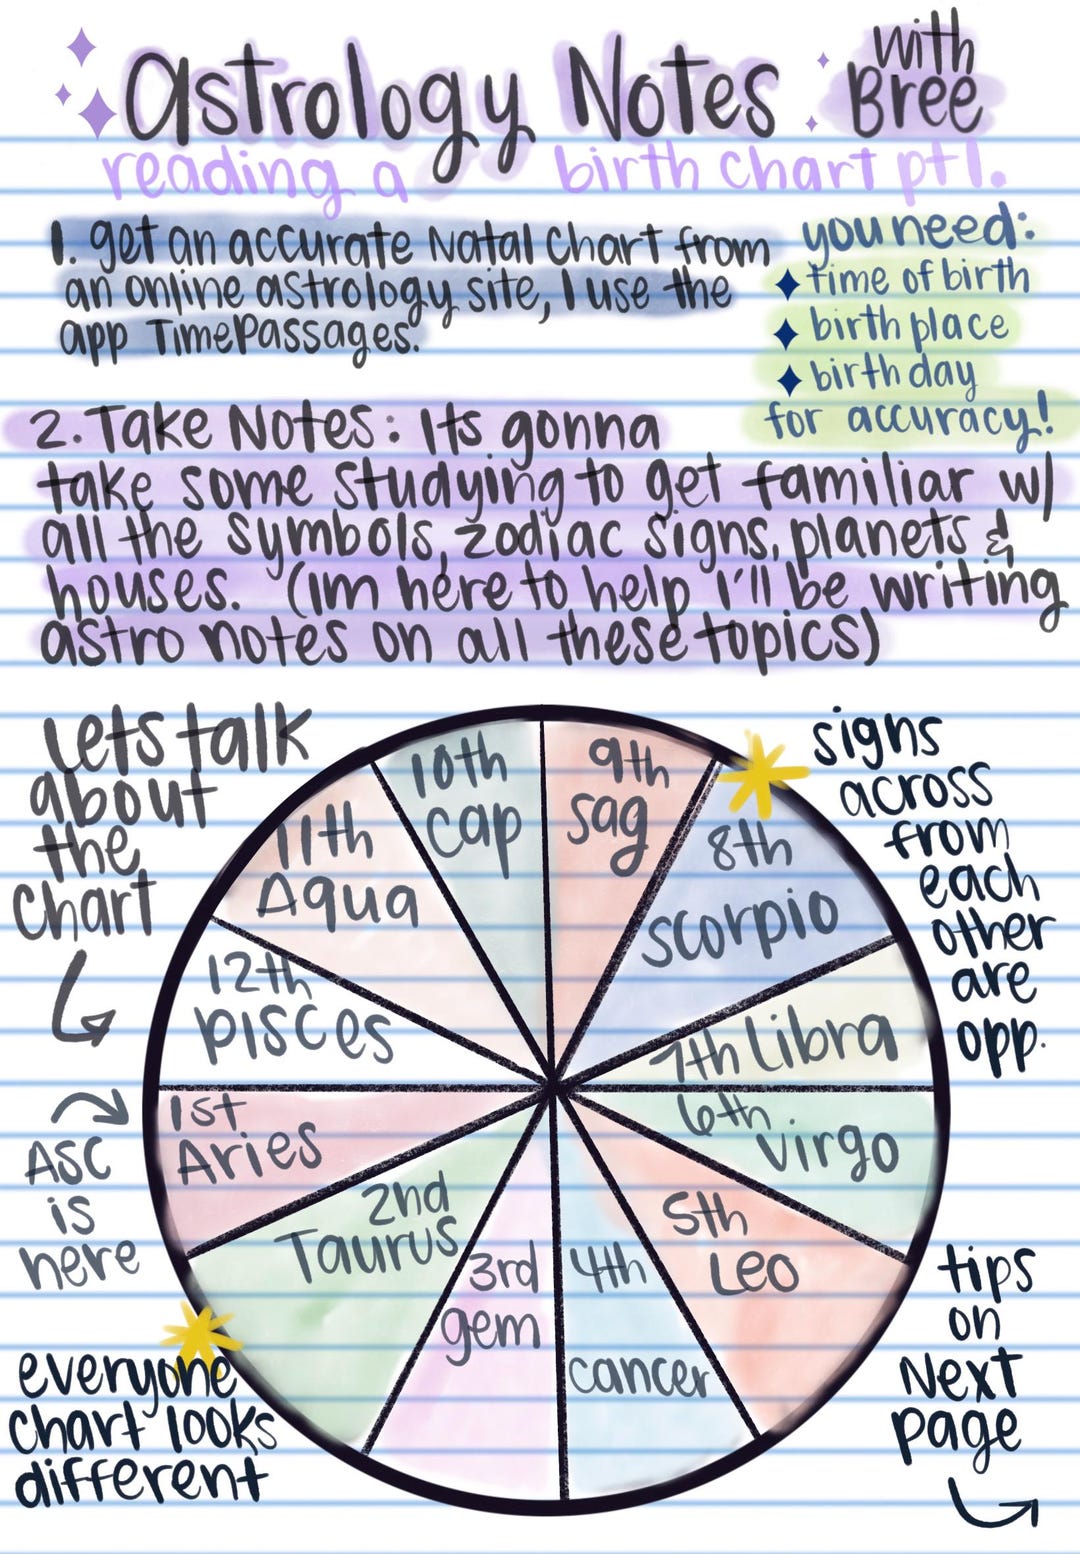 Astrology Notes
with
Bree
reading a birth chart pt1.
1. get an accurate Natal Chart from
an online astrology site, I use the
app TimePassages.
you need:
time of birth
birth place
birth day
for accuracy!
2. Take Notes: Its gonna
take some studying to get familiar w/
all the symbols, zodiac signs, planets &
houses. (Im here to help I'll be writing
astro notes on all these topics)
Lets talk
about
the
Chart
signs
across
from
each
other
are
opp.
10th
cap
9th
sag
11th
Aqua
8th
scorpio
12th
pisces
7th Libra
1st
Aries
6th
virgo
2nd
Taurus
5th
Leo
3rd
gem
4th
cancer
ASC
is
here
everyone
chart looks
different
tips
on
Next
page